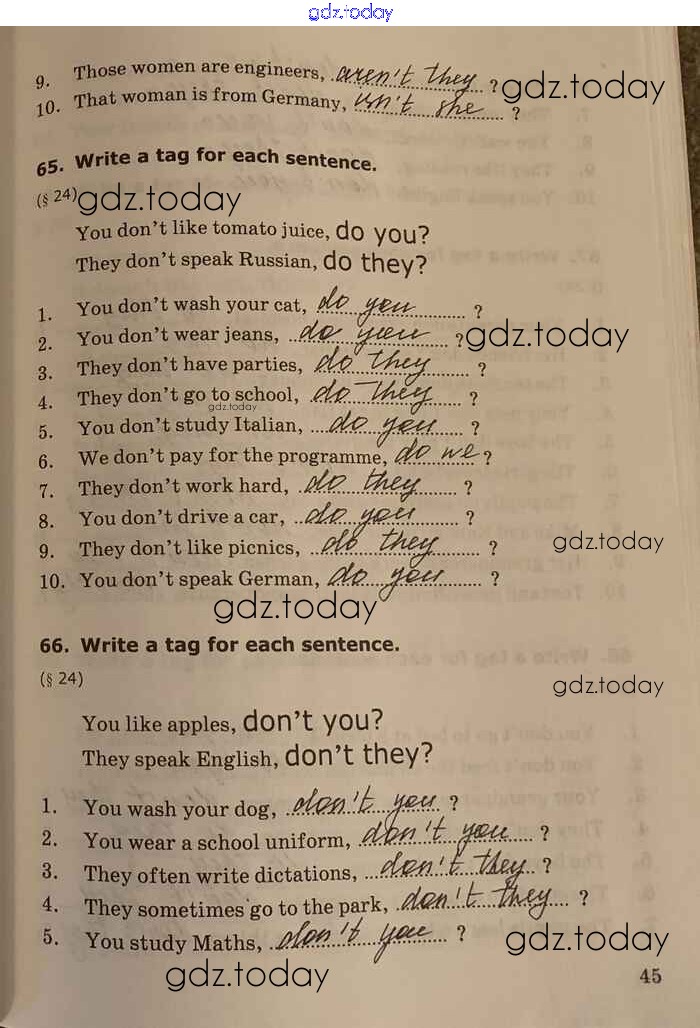 gdz.today
9. Those women are engineers, aren't they ? gdz.today
10. That woman is from Germany, isn't she ?
65. Write a tag for each sentence.
(§ 24) gdz.today
You don't like tomato juice, do you?
They don't speak Russian, do they?
1. You don't wash your cat, do you ?
2. You don't wear jeans, do you ? gdz.today
3. They don't have parties, do they ?
4. They don't go to school, do they ?
gdz.today
5. You don't study Italian, do you ?
6. We don't pay for the programme, do we ?
7. They don't work hard, do they ?
8. You don't drive a car, do you ?
9. They don't like picnics, do they ? gdz.today
10. You don't speak German, do you ?
gdz.today
66. Write a tag for each sentence.
(§ 24) gdz.today
You like apples, don't you?
They speak English, don't they?
1. You wash your dog, don't you ?
2. You wear a school uniform, don't you ?
3. They often write dictations, don't they ?
4. They sometimes go to the park, don't they ?
5. You study Maths, don't you ? gdz.today
gdz.today 45